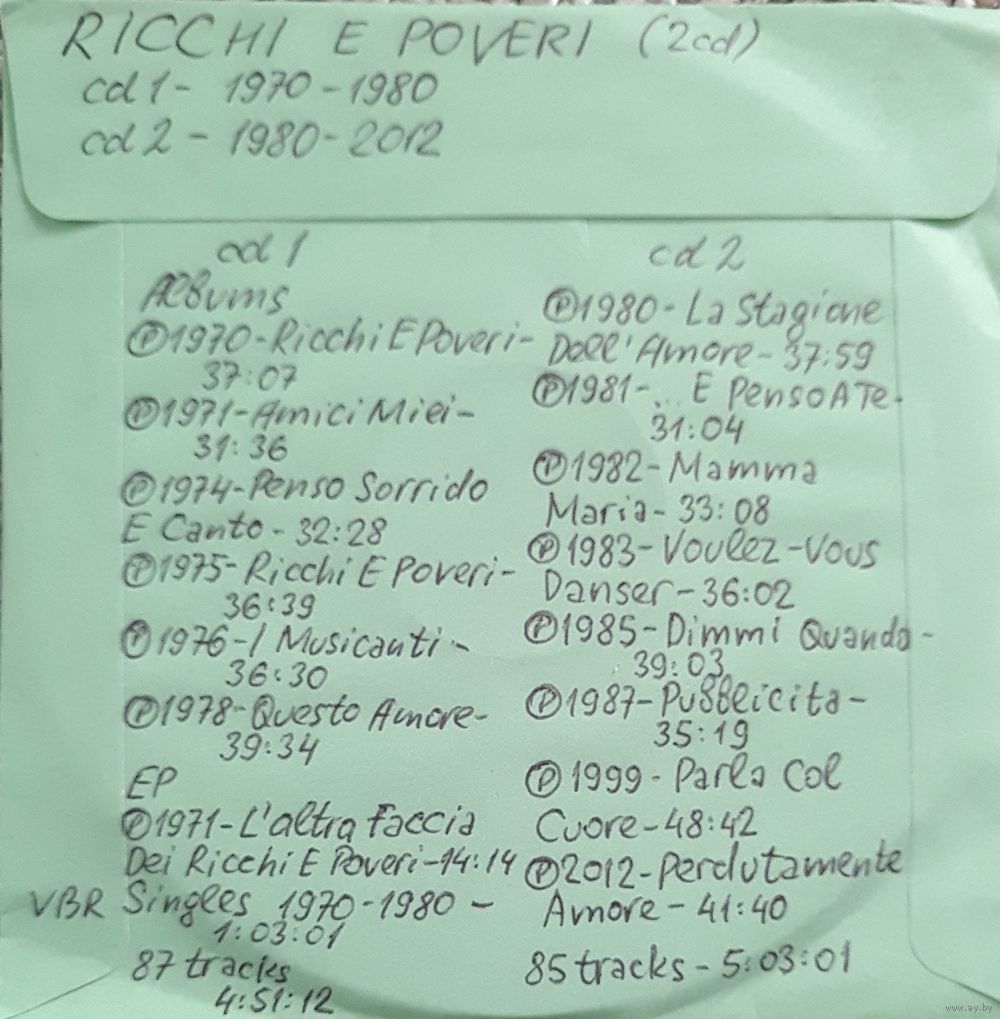 RICCHI E POVERI (2cd)
cd 1 - 1970 - 1980
cd 2 - 1980 - 2012
cd 1
Albums
Ⓟ1970-Ricchi E Poveri-
37:07
Ⓟ1971-Amici Miei-
31:36
Ⓟ1974-Penso Sorrido
E Canto - 32:28
Ⓟ1975-Ricchi E Poveri-
36:39
Ⓟ1976-I Musicanti-
36:30
Ⓟ1978-Questo Amore-
39:34
EP
Ⓟ1971-L'altra Faccia
Dei Ricchi E Poveri-14:14
VBR Singles 1970-1980 -
1:03:01
87 tracks
4:51:12
cd 2
Ⓟ1980-La Stagione
Dell'Amore-37:59
Ⓟ1981-... E Penso A Te-
31:04
Ⓟ1982-Mamma
Maria-33:08
Ⓟ1983-Voulez-Vous
Danser-36:02
Ⓟ1985-Dimmi Quando-
39:03
Ⓟ1987-Pubblicita-
35:19
Ⓟ1999-Parla Col
Cuore-48:42
Ⓟ2012-Perdutamente
Amore-41:40
85 tracks-5:03:01
www.ay.by